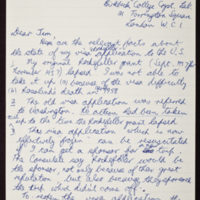 Birkbeck College Cryst. Lab.
21 Torrington Square
London W.C.1
Dear Jim,
Here are the relevant facts about
the state of my visa application to the U.S
My original Rockefeller grant (Sept. 1957
November 1957) lapsed. I was not able to
take it up (a) because of the visa difficulty
(b) Rosalind's death in 1958
The old visa application was referred
to Washington. No action had been taken
up to the time the Rockefeller grant lapsed.
The visa application which is now
effectively frozen can be resuscitated
if I can get a sponsor for the trip. The
Consulate say Rockefeller would be
the sponsor, not only because of their great
reputation, but also because they approach
the trip which didn't come off.
To reopen the visa application the